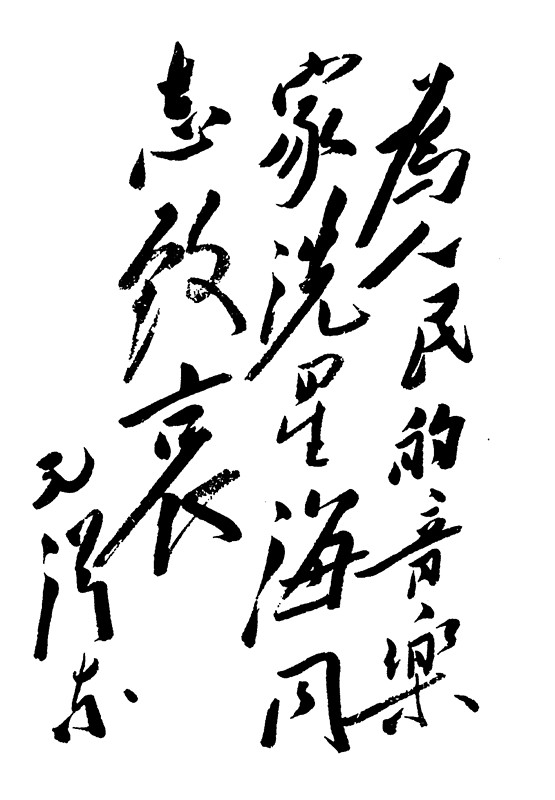 为人民的音樂
家冼星海同
志致哀
毛澤东